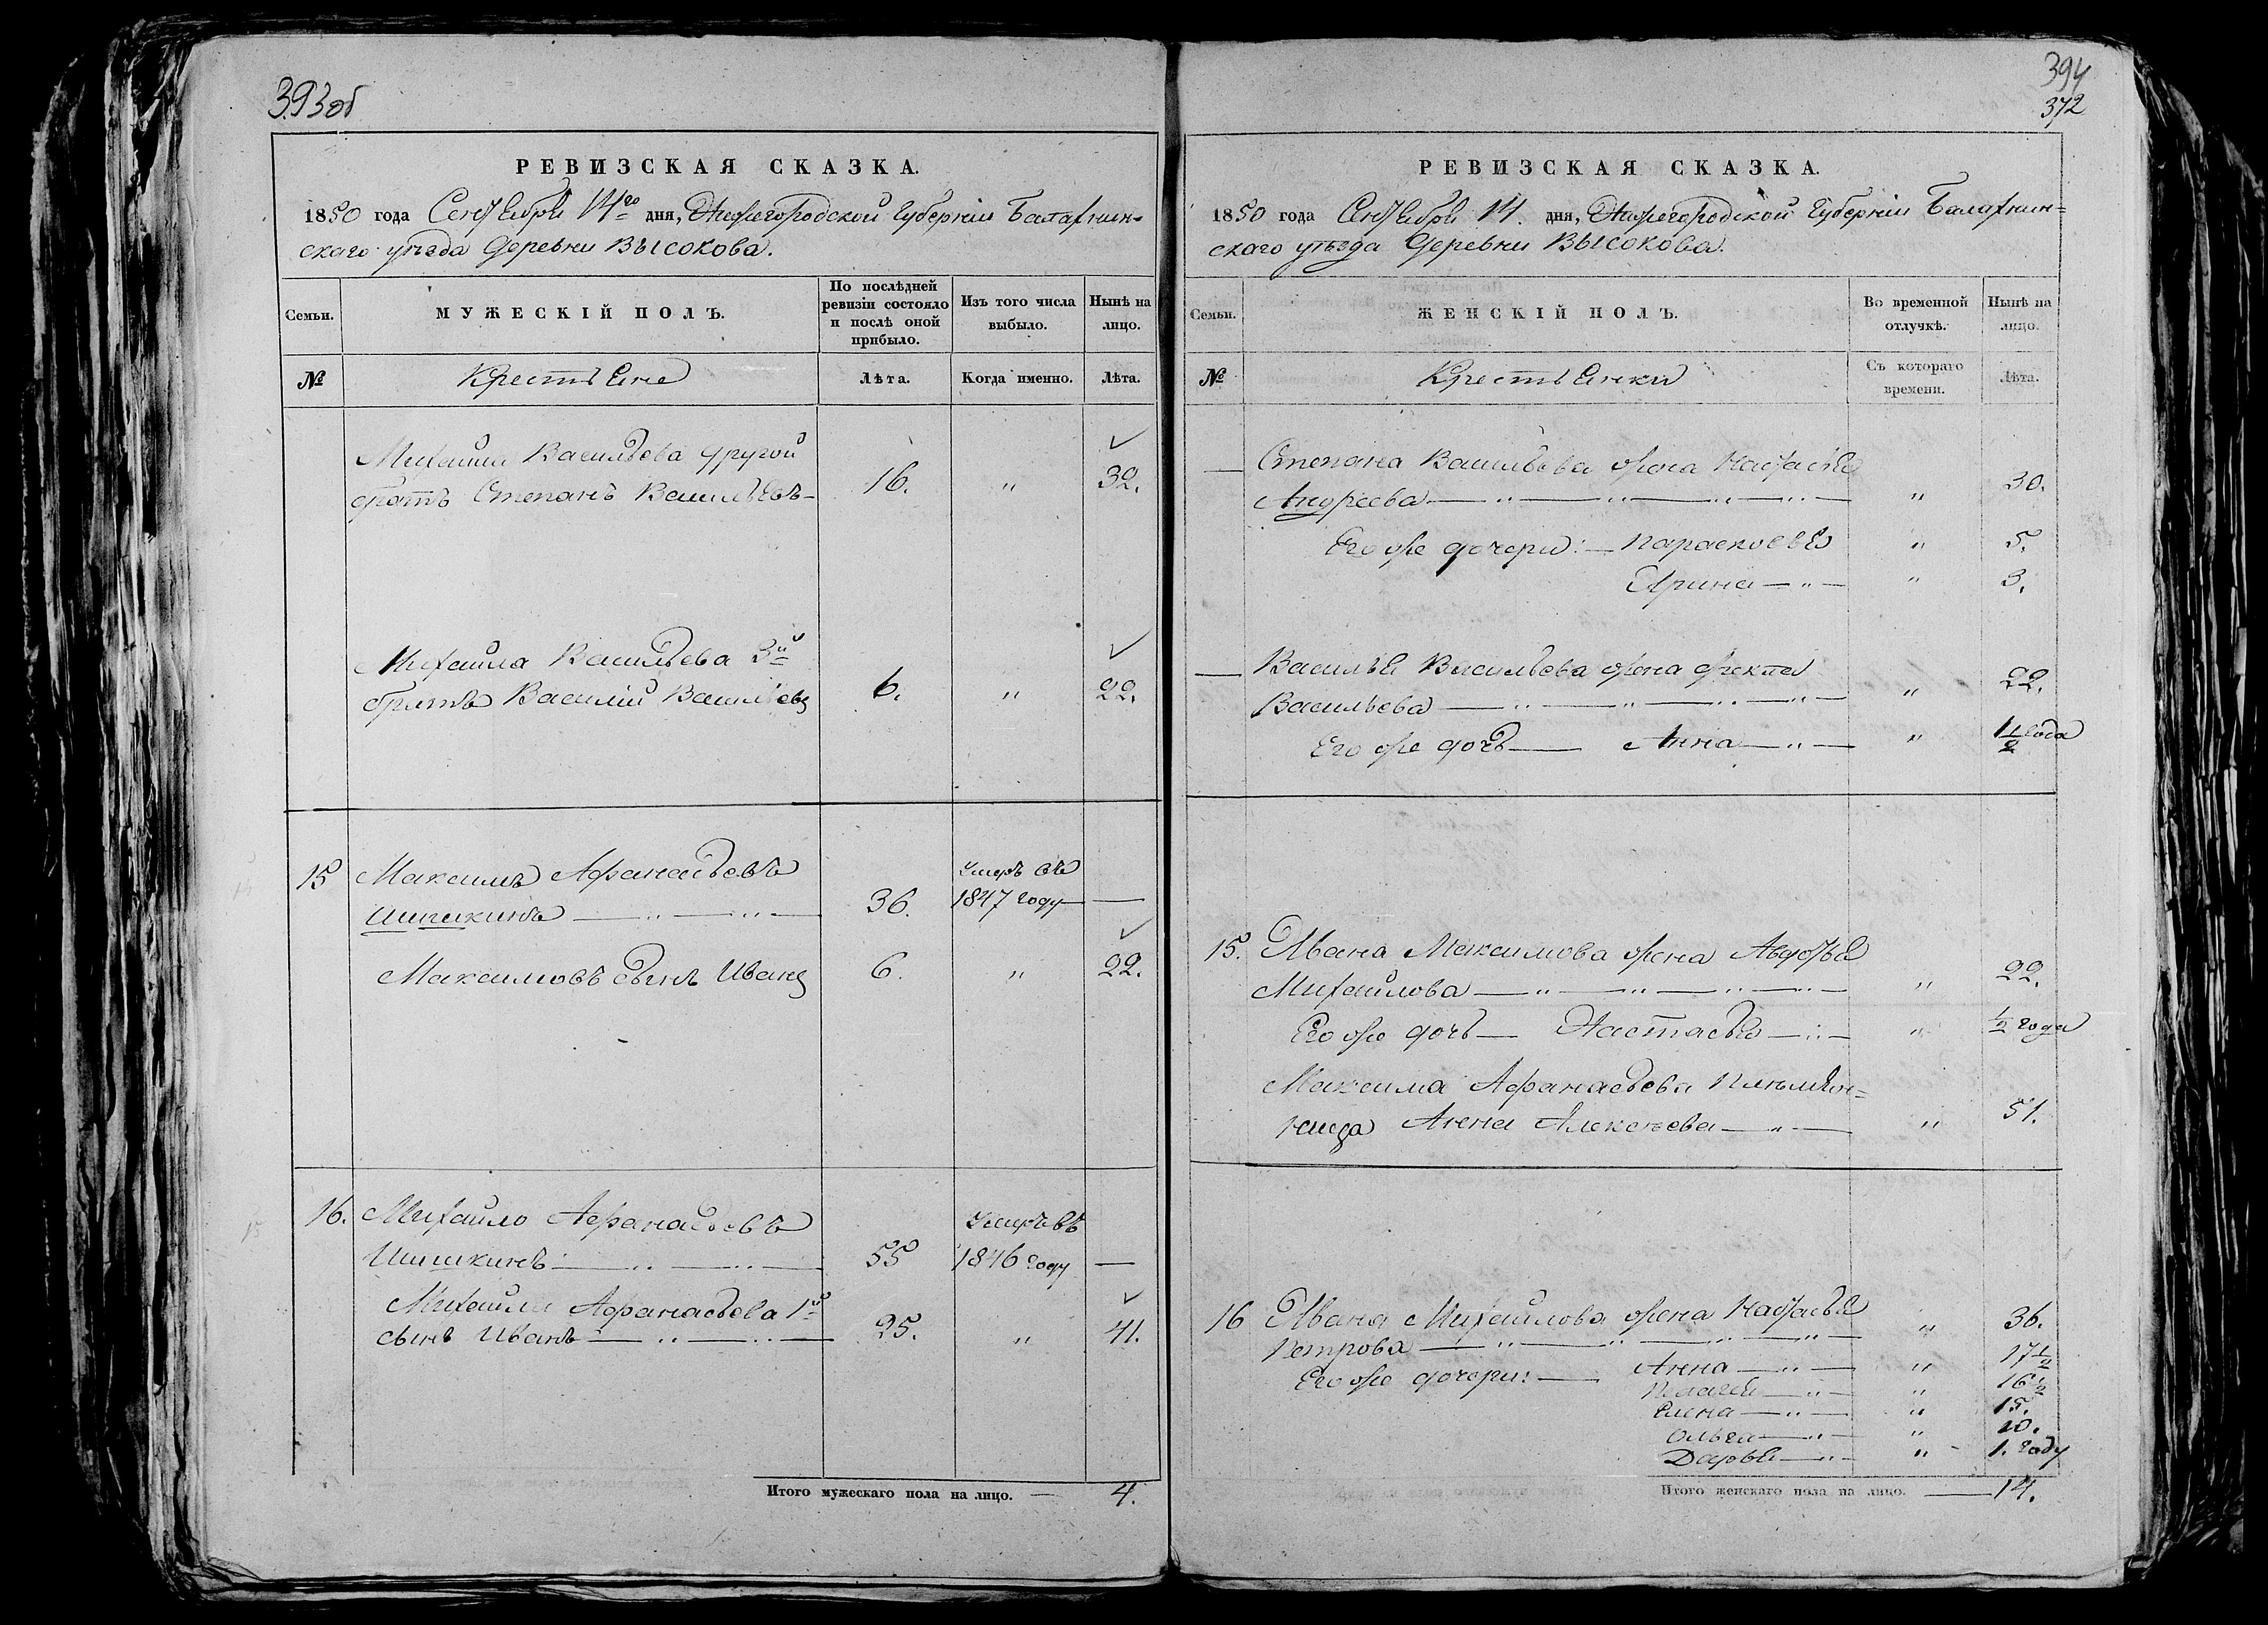 393об
РЕВИЗСКАЯ СКАЗКА.
1850 года Сентября 14го дня, Нижегородской Губернiи Балахнин-
скаго уѣзда деревни Высокова.
Семьи.
МУЖЕСКІЙ ПОЛЪ.
По послѣдней ревизіи состояло и послѣ оной прибыло.
Изъ того числа выбыло.
Нынѣ на лицо.
№
Крестьяне
Лѣта.
Когда именно.
Лѣта.
Михаила Васильева другой
братъ Степанъ Васильевъ — 16. " 32.
Михаила Васильева 3й
братъ Василій Васильевъ 6. " 22.
15 Максимъ Афанасьевъ Умеръ въ
Шишкинъ — " — " — 36. 1847 году —
Максимовъ сынъ Иванъ 6. " 22.
16. Михайло Афанасьевъ Умеръ въ
Шишкинъ — " — " — 55 1846 году —
Михайла Афанасьева 1й
сынъ Иванъ — " — " — 25. " 41.
Итого мужескаго пола на лицо. — 4.
394
372
РЕВИЗСКАЯ СКАЗКА.
1850 года Сентября 14. дня, Нижегородской Губернiи Балахнин=
скаго уѣзда деревни Высокова.
Семьи.
ЖЕНСКІЙ ПОЛЪ.
Во временной отлучкѣ.
Нынѣ на лицо.
№
Крестьянки
Съ котораго времени.
Лѣта.
— Степана Васильева жена Настасья
Андреева — " — " — " — " — " 30.
Его же дочери: — Парасковья " 5.
Арина — " — " 3.
— Василья Васильева жена Фекла
Васильева — " — " — " — " — " 22.
Его же дочь — Анна — " — " 1 1/2 года
15. Ивана Максимова жена Авдотья
Михайлова — " — " — " — " — " 22.
Его же дочь — Настасья — " — " 1/2 года
Максима Афанасьева племян=
ница Анна Алексѣева — " — " 51.
16 Ивана Михайлова жена Настасья " 36.
Петрова — " — " — " — " —
Его же дочери: — Анна — " — " 17 1/2
Пелагея — " — " 16 1/2
Елена — " — " 15.
Ольга — " — " 10.
Дарья — " — " 1. году
Итого женскаго пола на лицо. — 14.